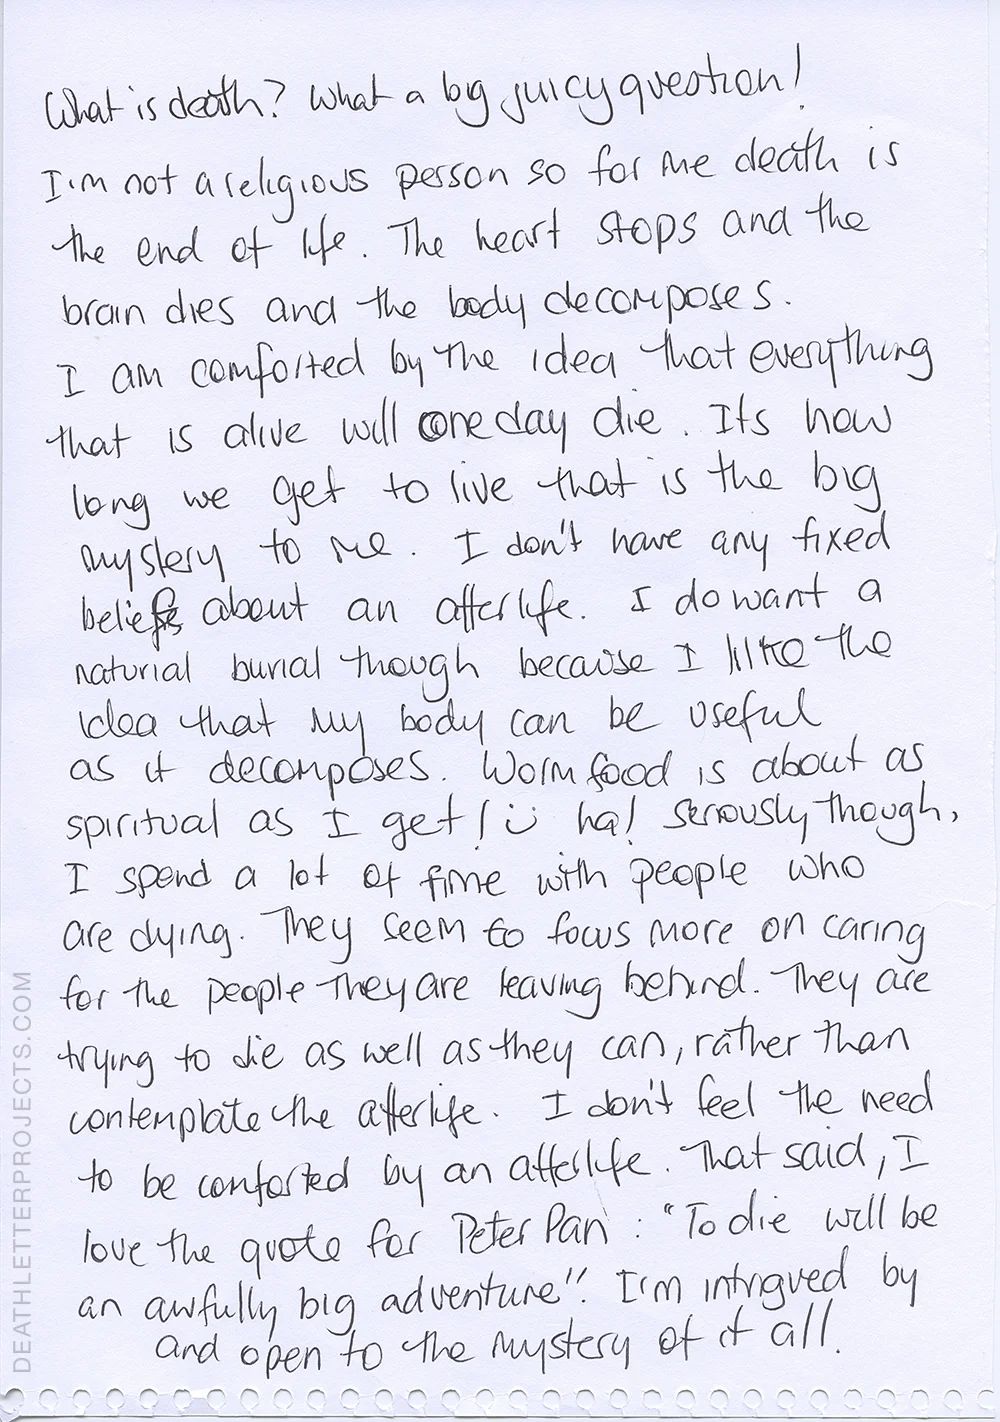 What is death? What a big juicy question!
I'm not a religious person so for me death is
the end of life. The heart stops and the
brain dies and the body decomposes.
I am comforted by the idea that everything
that is alive will one day die. Its how
long we get to live that is the big
mystery to me. I don't have any fixed
beliefs about an afterlife. I do want a
naturial burial though because I like the
idea that my body can be useful
as it decomposes. Worm food is about as
spiritual as I get! ü ha! Seriously though,
I spend a lot of time with people who
are dying. They seem to focus more on caring
for the people they are leaving behind. They are
trying to die as well as they can, rather than
contemplate the afterlife. I don't feel the need
to be comforted by an afterlife. That said, I
love the quote for Peter Pan: "To die will be
an awfully big adventure". I'm intrigued by
and open to the mystery of it all.
DEATHLETTERPROJECTS.COM